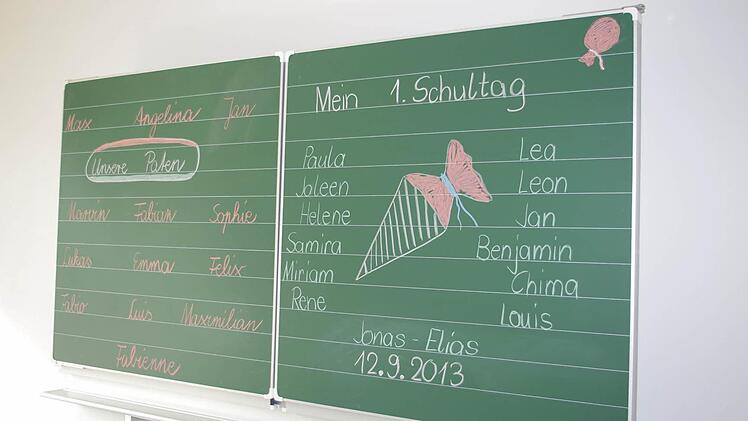 Max Angelina Jan
Unsere Paten
Marvin Fabian Sophie
Lukas Emma Felix
Fabio Luis Maximilian
Fabienne
Mein 1. Schultag
Paula Lea
Joleen Leon
Helene Jan
Samira Benjamin
Miriam Chima
Rene Louis
Jonas-Elias
12.9.2013